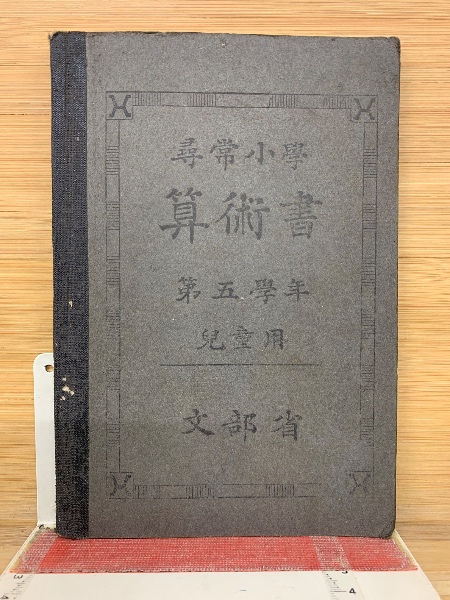 尋常小學
算術書
第五學年
兒童用
文部省
3
4